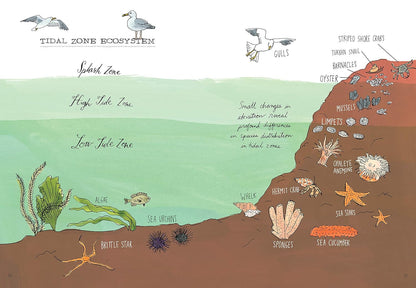 TIDAL ZONE ECOSYSTEM
Splash Zone
High Tide Zone
Low Tide Zone
GULLS
Small changes in
elevation reveal
profound differences
in species distribution
in tidal zone.
STRIPED SHORE CRABS
TURBAN SNAIL
BARNACLES
OYSTER
MUSSELS
LIMPETS
OPALETE
ANEMONE
HERMIT CRAB
WHELK
SEA STARS
SPONGES
SEA CUCUMBER
ALGAE
SEA URCHINS
BRITTLE STAR